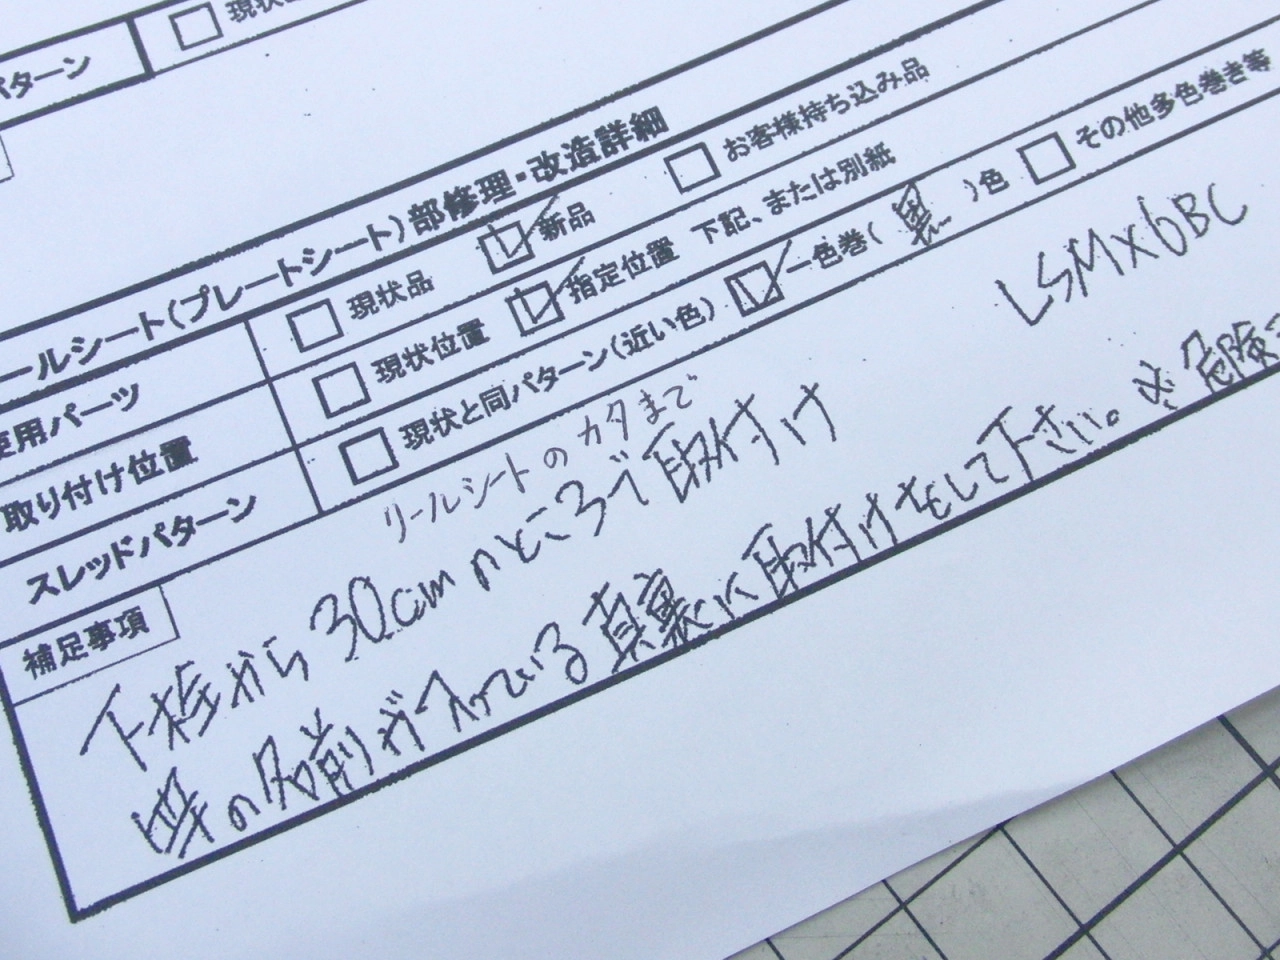 パターン □ 現状
ールシート(プレートシート)部修理・改造詳細
使用パーツ □ 現状品 ☑ 新品 □ お客様持ち込み品
取り付け位置 □ 現状位置 ☑ 指定位置 下記、または別紙
スレッドパターン □ 現状と同パターン(近い色) ☑ 一色巻( 黒 )色 □ その他多色巻き等
補足事項
リールシートのカタまで
LSMX6BC
下栓から30cmのところで取付け
竿の名前が入っている真裏に取付けをして下さい。※危険